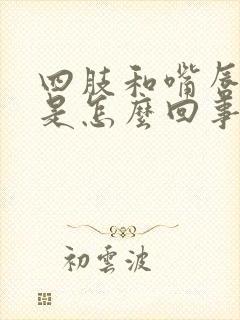 四肢和嘴唇
是怎麼回事
初雲波